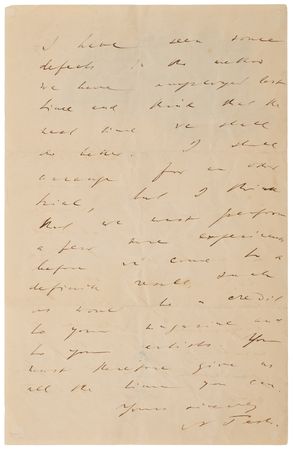 I have seen some
defects in the method
we have employed last
time and think that the
next time we shall
do better. I shall
arrange for an other
trial, but I think
that we must perform
a few more experiments
before we come to a
definite result such
as would be a credit
to your magazine and
to your artists. You
must therefore give us
all the time you can.
Yours sincerely
N. Tesla